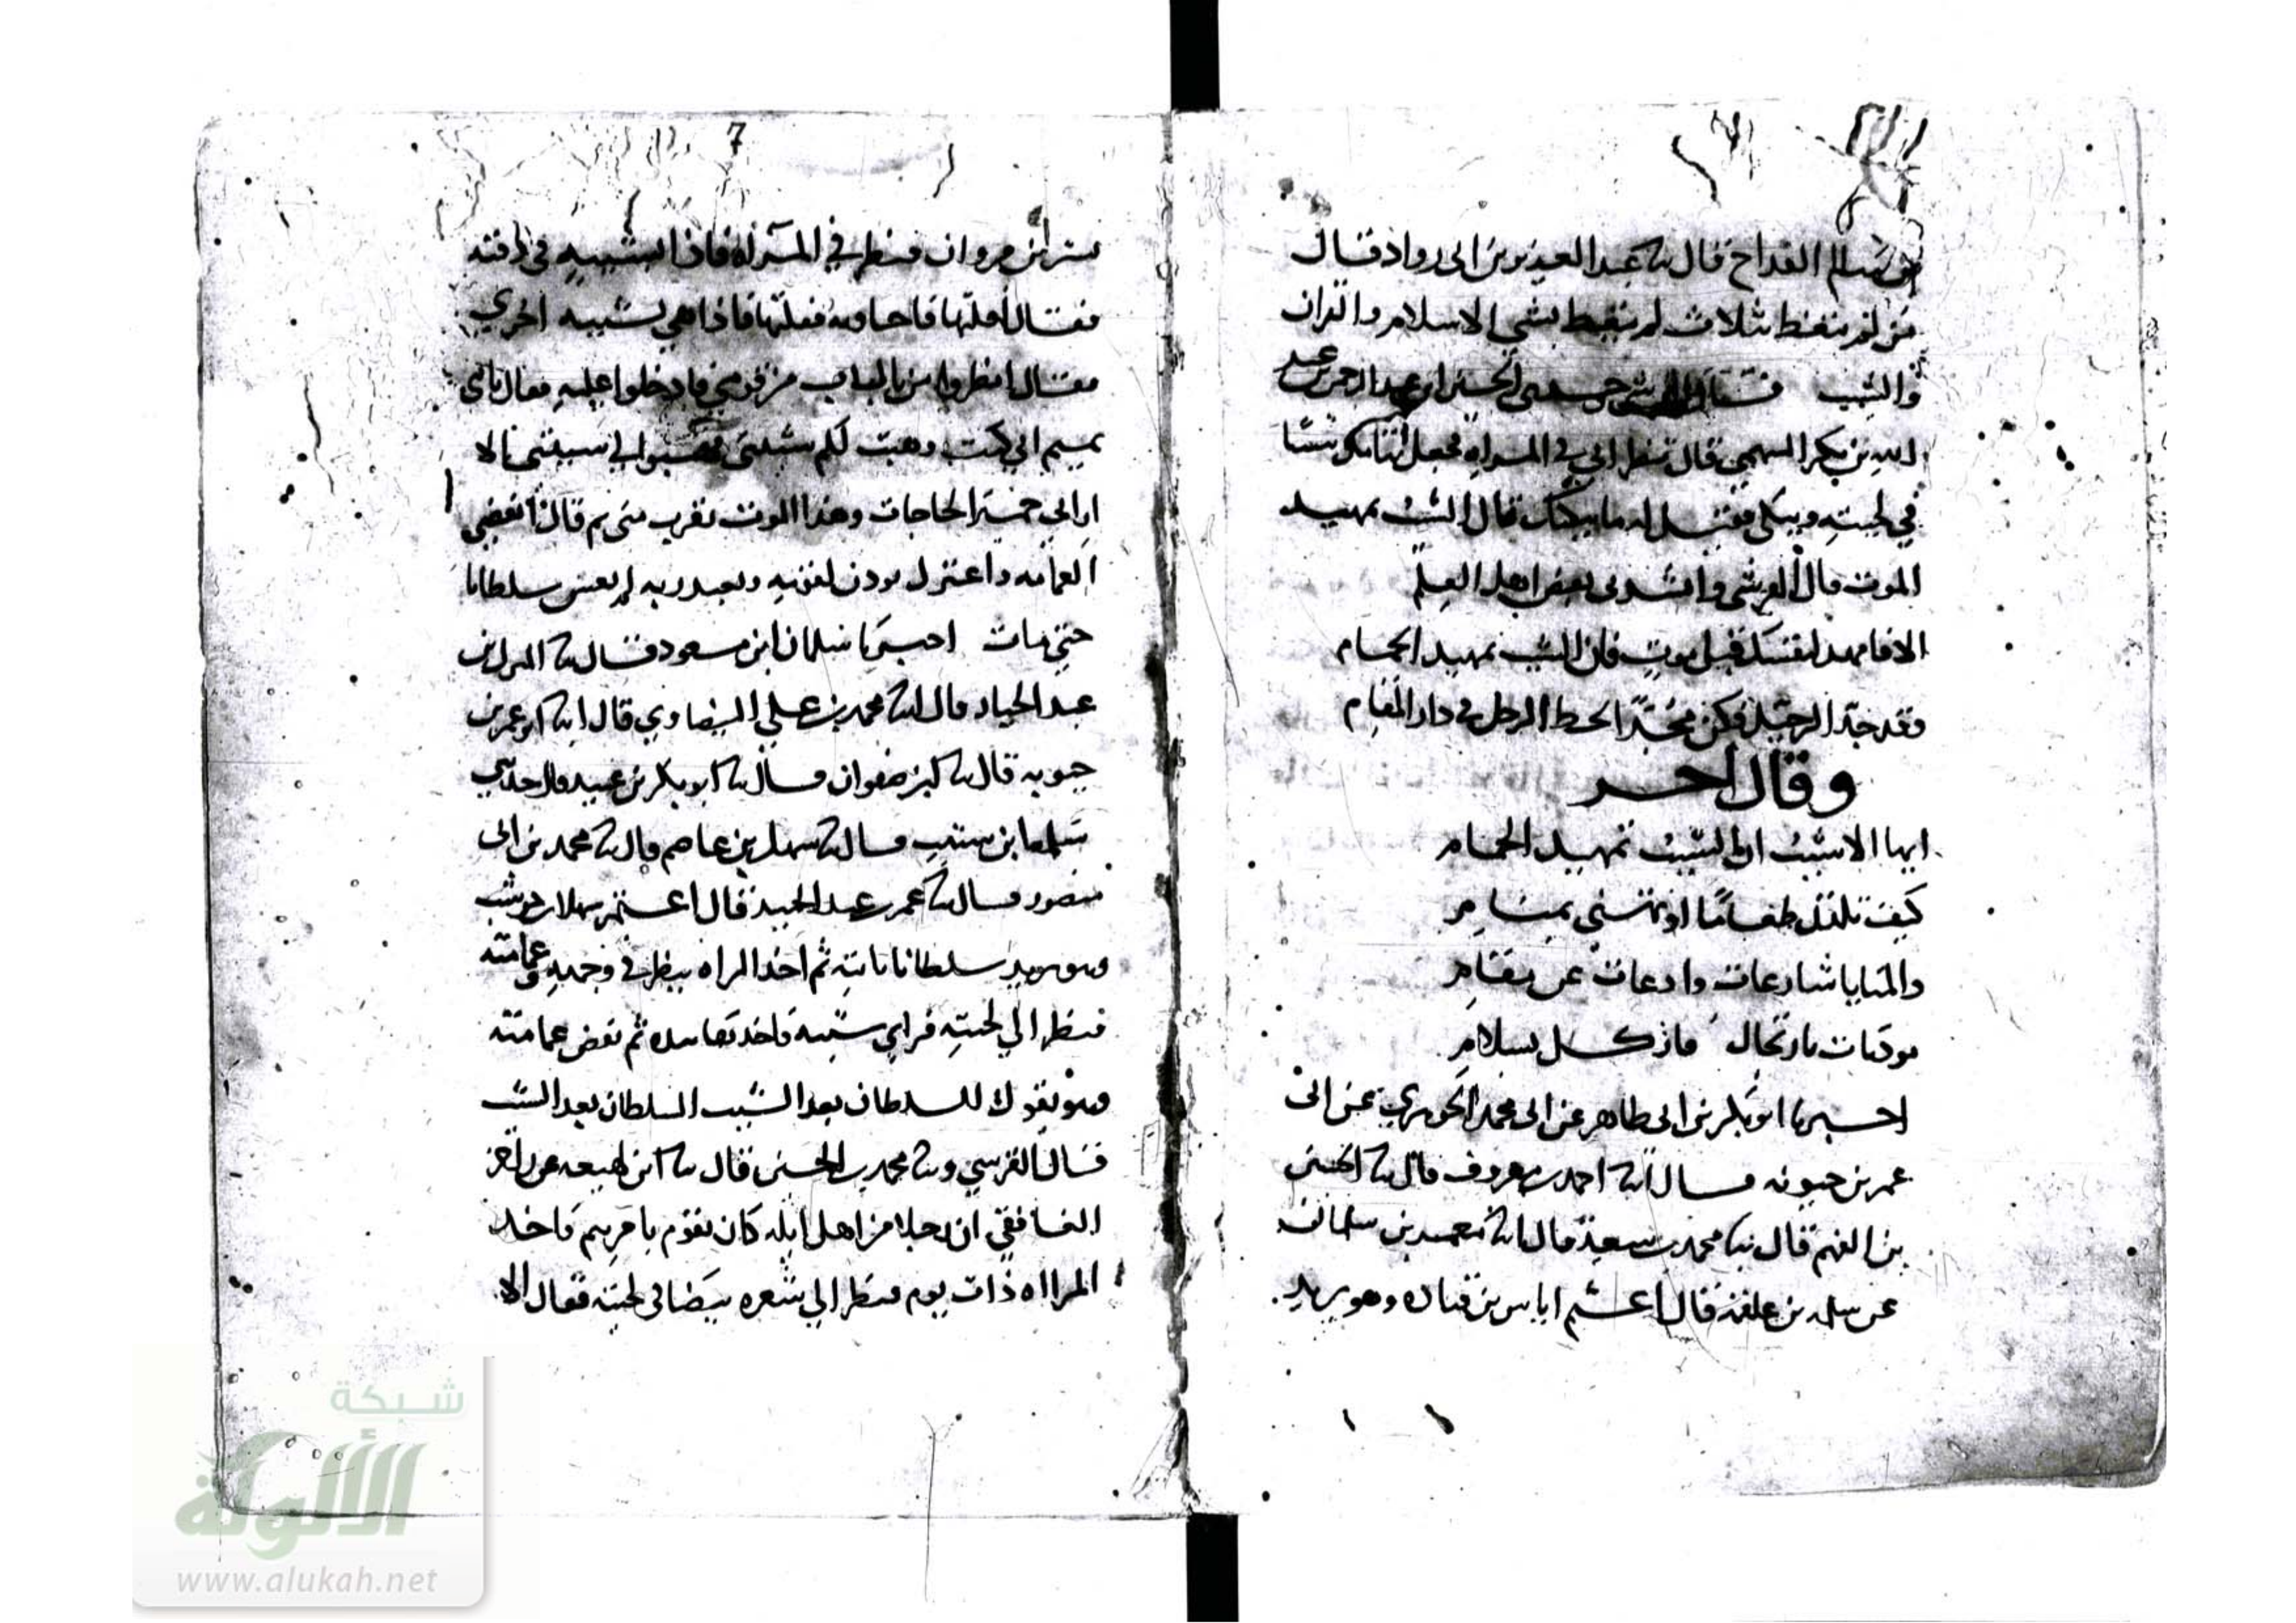 بن سالم القداح قال نا عبد العزيز بن ابي رواد فقال
من لم يتعظ بثلاث لم يتعظ بشي الاسلام والقران
والشيب فقال القرشي حدثني الحسن ابن عبد الرحمن عبد
الله بن بكر السهمي قال نظر ابي في المراه فجعل شيبا
في لحيته ويبكي فقيل له ما يبكيك قال الشيب تمهيد
الموت قال القرشي وانشدني بعض اهل العلم
الا فامهد لنفسك قبل موت فان الشيب تمهيد الحمام
وقد جد الرحيل فكن مجدا لحط الرحل في دار المقام
وقال اخر
ايها الاشيب ان الشيب تمهيد الحمام
كيف تلتذ طعاما او تهنى بمنام
والمنايا شارعات وادعات عن مقام
موذنات بارتحال فاذكل بسلام
اخبرنا ابو بكر بن ابي طاهر عن ابي محمد الجوهري عن ابي
عمر بن حيويه قال انا احمد بن معروف قال نا الحسين
بن الفهم قال نا محمد بن سعيد قال انا محمد بن سلمان
عن سلمه بن علقمة قال اعتم اياس بن قتاده وهو يريد
7
بشر ابن مروان فنظر في المرآة فاذا بشيبه في ذقنه
فقال افلتها فاحاوبه ففلتها فاذا هي بشيبه اخري
فقال انظروا من بالباب من قومي فادخلوا عليه فقال يا بني
تميم اني كنت وهبت لكم شبيبتي فهبوا لي شيبتي الا
اراني حمير الحاجات وهذا الموت يقرب مني ثم قال انفضي
العمامه واعتزل يوذن لقومه ويعبد ربه لم يغش سلطانا
حتي مات اخبرنا سلمان ابن مسعود قال نا المبارك بن
عبد الجبار قال انا محمد بن علي البيضاوي قال انا ابو عمر بن
حيويه قال نا ابن صفوان قال نا ابو بكر بن عبيد قال حدثني
سلمه ابن شبيب قال نا سهل بن عاصم قال نا محمد بن ابي
منصور قال نا عمر بن عبد المجيد قال اعتم سهلا بن حوشب
وهو يريد سلطانا ياتيه ثم اخذ المراه ينظر في وجهه وعمامته
فنظر الي لحيته فراي شيبه فاخذتها بيده ثم نقض عمامته
وهو يقول للسلطان بعد الشيب السلطان بعد الشيب
قال القرشي ونا محمد بن الحسين قال نا ابن لهيعه عن
الغافقي ان رجلا من اهل ايله كان يقوم بامرهم فاخذ
المرااه ذات يوم فنظر الي شعره بيضا في لحيته فقال الا
شبكة
الألوكة
www.alukah.net